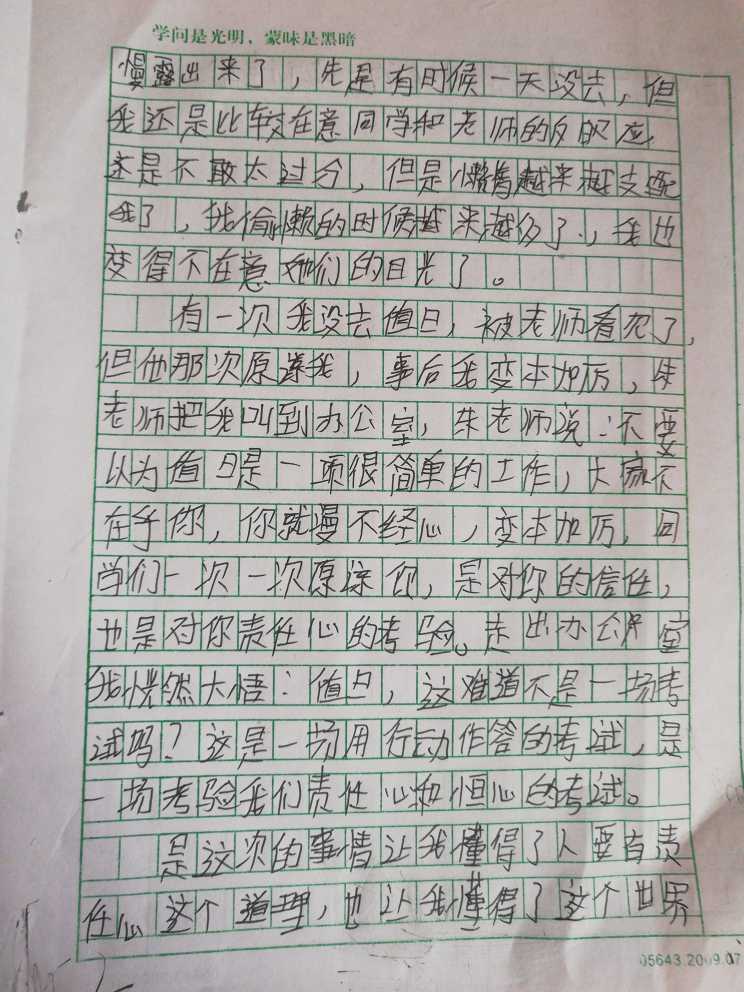 学问是光明，蒙昧是黑暗
慢露出来了，先是有时候一天没去，但
我还是比较在意同学和老师的反应
还是不敢太过分，但是懒惰越来越支配
我了，我偷懒的时候越来越多了，我也
变得不在意她们的目光了。
有一次我没去值日，被老师看见了，
但他那次原谅我，事后我变本加厉，朱
老师把我叫到办公室，朱老师说：不要
以为值日是一项很简单的工作，大家不
在乎你，你就漫不经心，变本加厉，同
学们一次一次原谅你，是对你的信任，
也是对你责任心的考验。走出办公室
我恍然大悟：值日，这难道不是一场考
试吗？这是一场用行动作答的考试，是
一场考验我们责任心和恒心的考试。
是这次的事情让我懂得了人要有责
任心这个道理，也让我懂得了这个世界
05643.2009.07